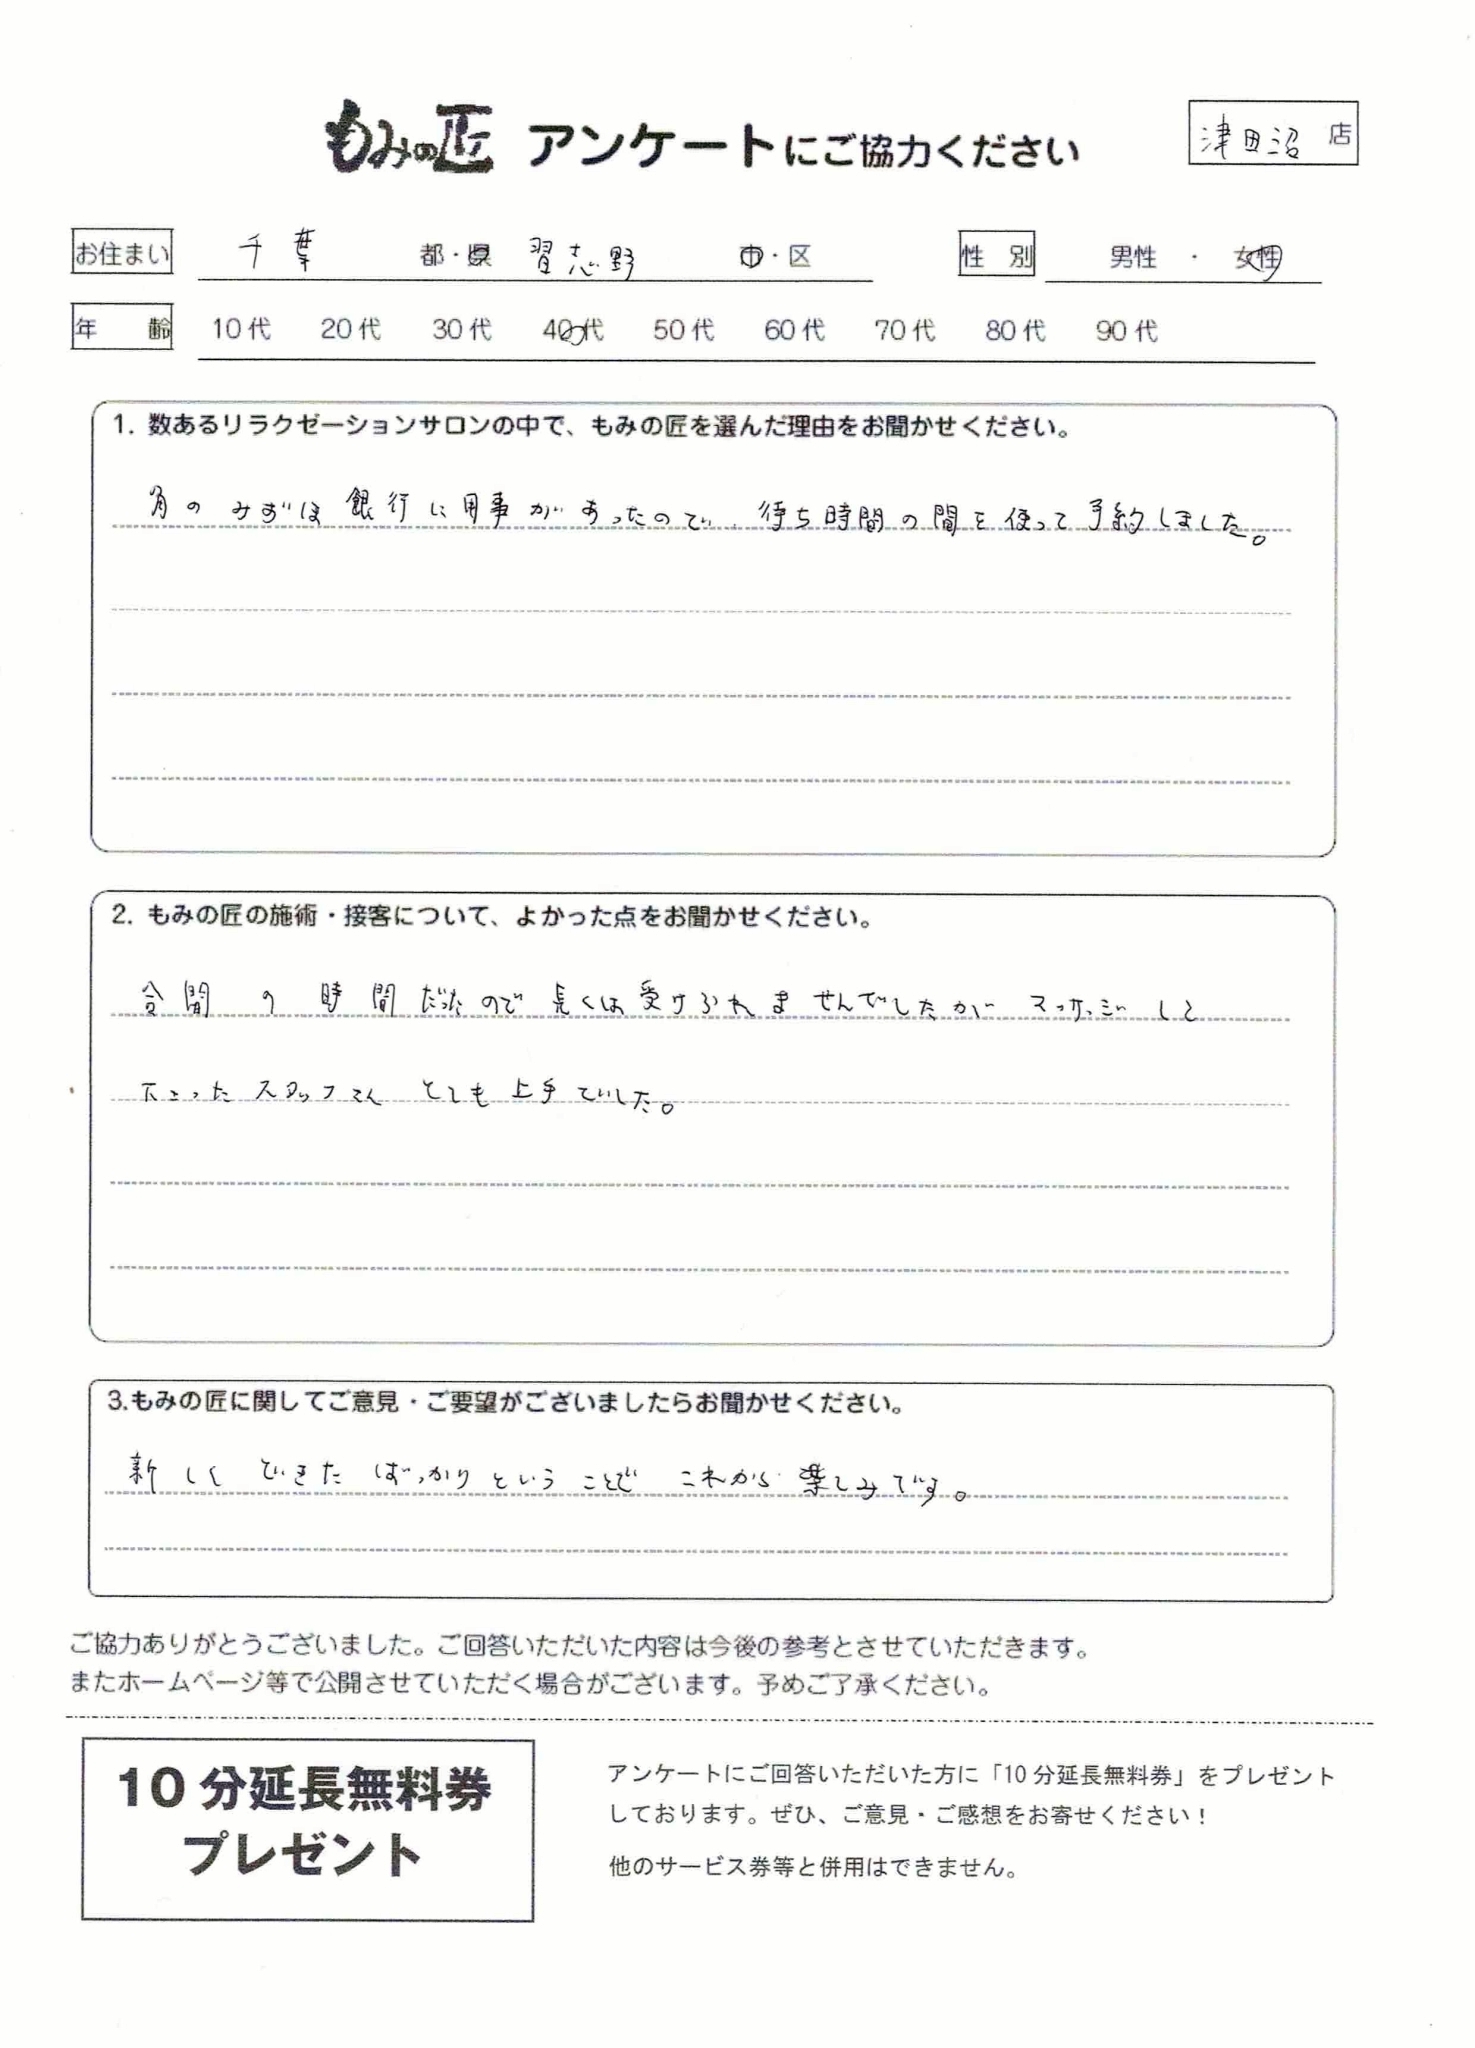 もみの匠 アンケートにご協力ください
津田沼 店
お住まい 千葉 都・県 習志野 市・区 性別 男性 ・ 女性
年齢 10代 20代 30代 40代 50代 60代 70代 80代 90代
1. 数あるリラクゼーションサロンの中で、もみの匠を選んだ理由をお聞かせください。
角の みずほ銀行に用事があったので、待ち時間の間を使って予約しました。
2. もみの匠の施術・接客について、よかった点をお聞かせください。
合間の時間だったので長くは受けられませんでしたが マッサージして
下さったスタッフさん とても上手でした。
3.もみの匠に関してご意見・ご要望がございましたらお聞かせください。
新しく できた ばっかりということで これから楽しみです。
ご協力ありがとうございました。ご回答いただいた内容は今後の参考とさせていただきます。
またホームページ等で公開させていただく場合がございます。予めご了承ください。
10分延長無料券
プレゼント
アンケートにご回答いただいた方に「10分延長無料券」をプレゼント
しております。ぜひ、ご意見・ご感想をお寄せください！
他のサービス券等と併用はできません。